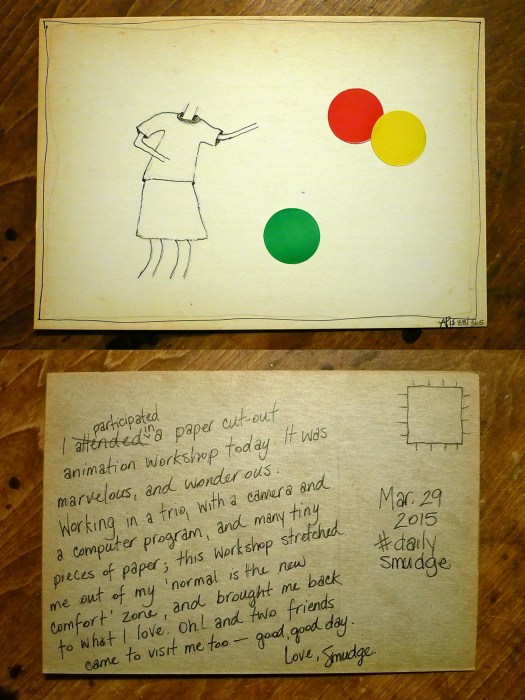 88/365
participated
I attended in a paper cut-out
animation workshop today. It was
marvelous, and wonderous.
Working in a trio, with a camera and
a computer program, and many tiny
pieces of paper; this workshop stretched
me out of my 'normal is the new
comfort' zone, and brought me back
to what I love. Oh! and two friends
came to visit me too — good, good day.
Love, Smudge.
Mar. 29
2015
#daily
smudge